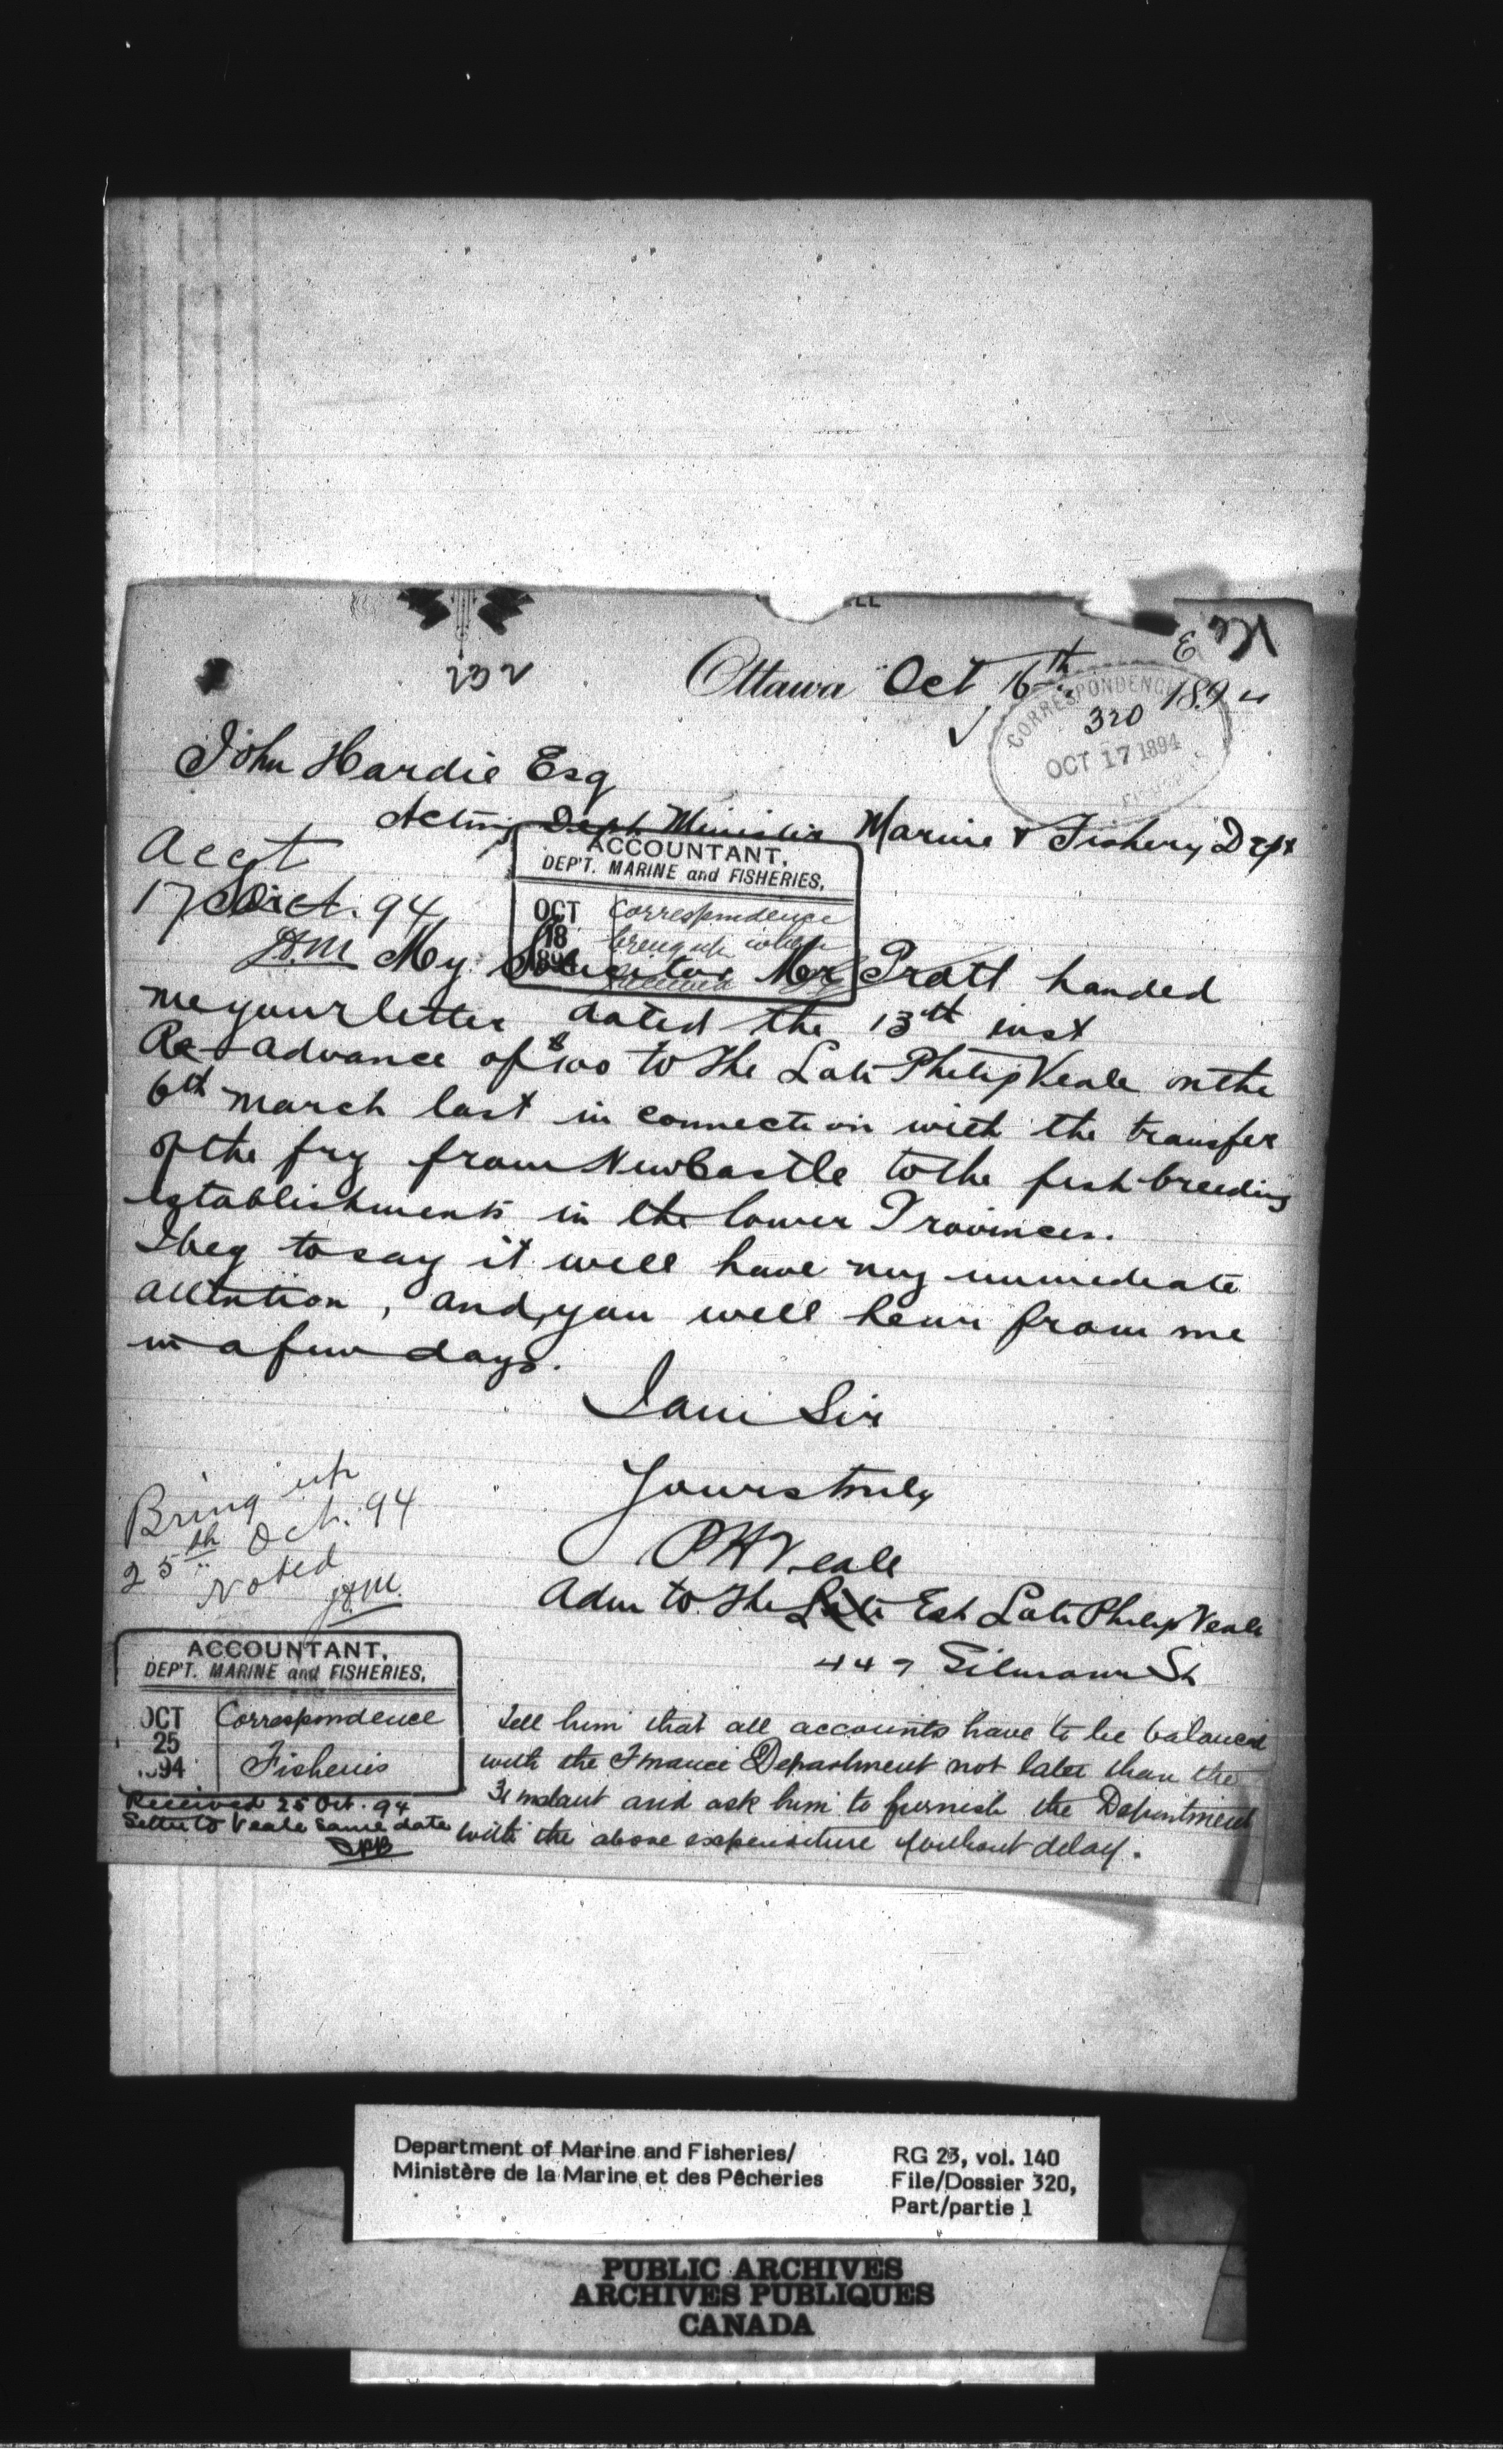 232
Ottawa Oct 16th 1894
CORRESPONDENCE
320
OCT 17 1894
John Hardie Esq
Acting Dept Minister Marine & Fishery Dept
Acct
17 Oct. 94
J.H.
ACCOUNTANT,
DEP'T. MARINE and FISHERIES,
OCT 18 1894
Correspondence
bring up when
received
My Solicitor Mr Pratt handed
me your letter dated the 13th inst
Re advance of $100 to the Late Philip Veale on the
6th March last in connection with the transfer
of the fry from NewCastle to the fish breeding
establishments in the lower Provinces.
I beg to say it will have my immediate
attention, and you will hear from me
in a few days.
I am Sir
Yours truly
P H Veale
Adm to the Late Est Late Philip Veale
449 Gilmour St
Bring up
25th Oct. 94
Noted
J.H.
ACCOUNTANT,
DEP'T. MARINE and FISHERIES,
OCT 25 1894
Correspondence
Fisheries
Received 25 Oct. 94
Letter to Veale same date
Tell him that all accounts have to be balanced
with the Finance Department not later than the
31 instant and ask him to furnish the Department
with the above expenditure without delay.
Department of Marine and Fisheries/
Ministère de la Marine et des Pêcheries
RG 23, vol. 140
File/Dossier 320,
Part/partie 1
PUBLIC ARCHIVES
ARCHIVES PUBLIQUES
CANADA